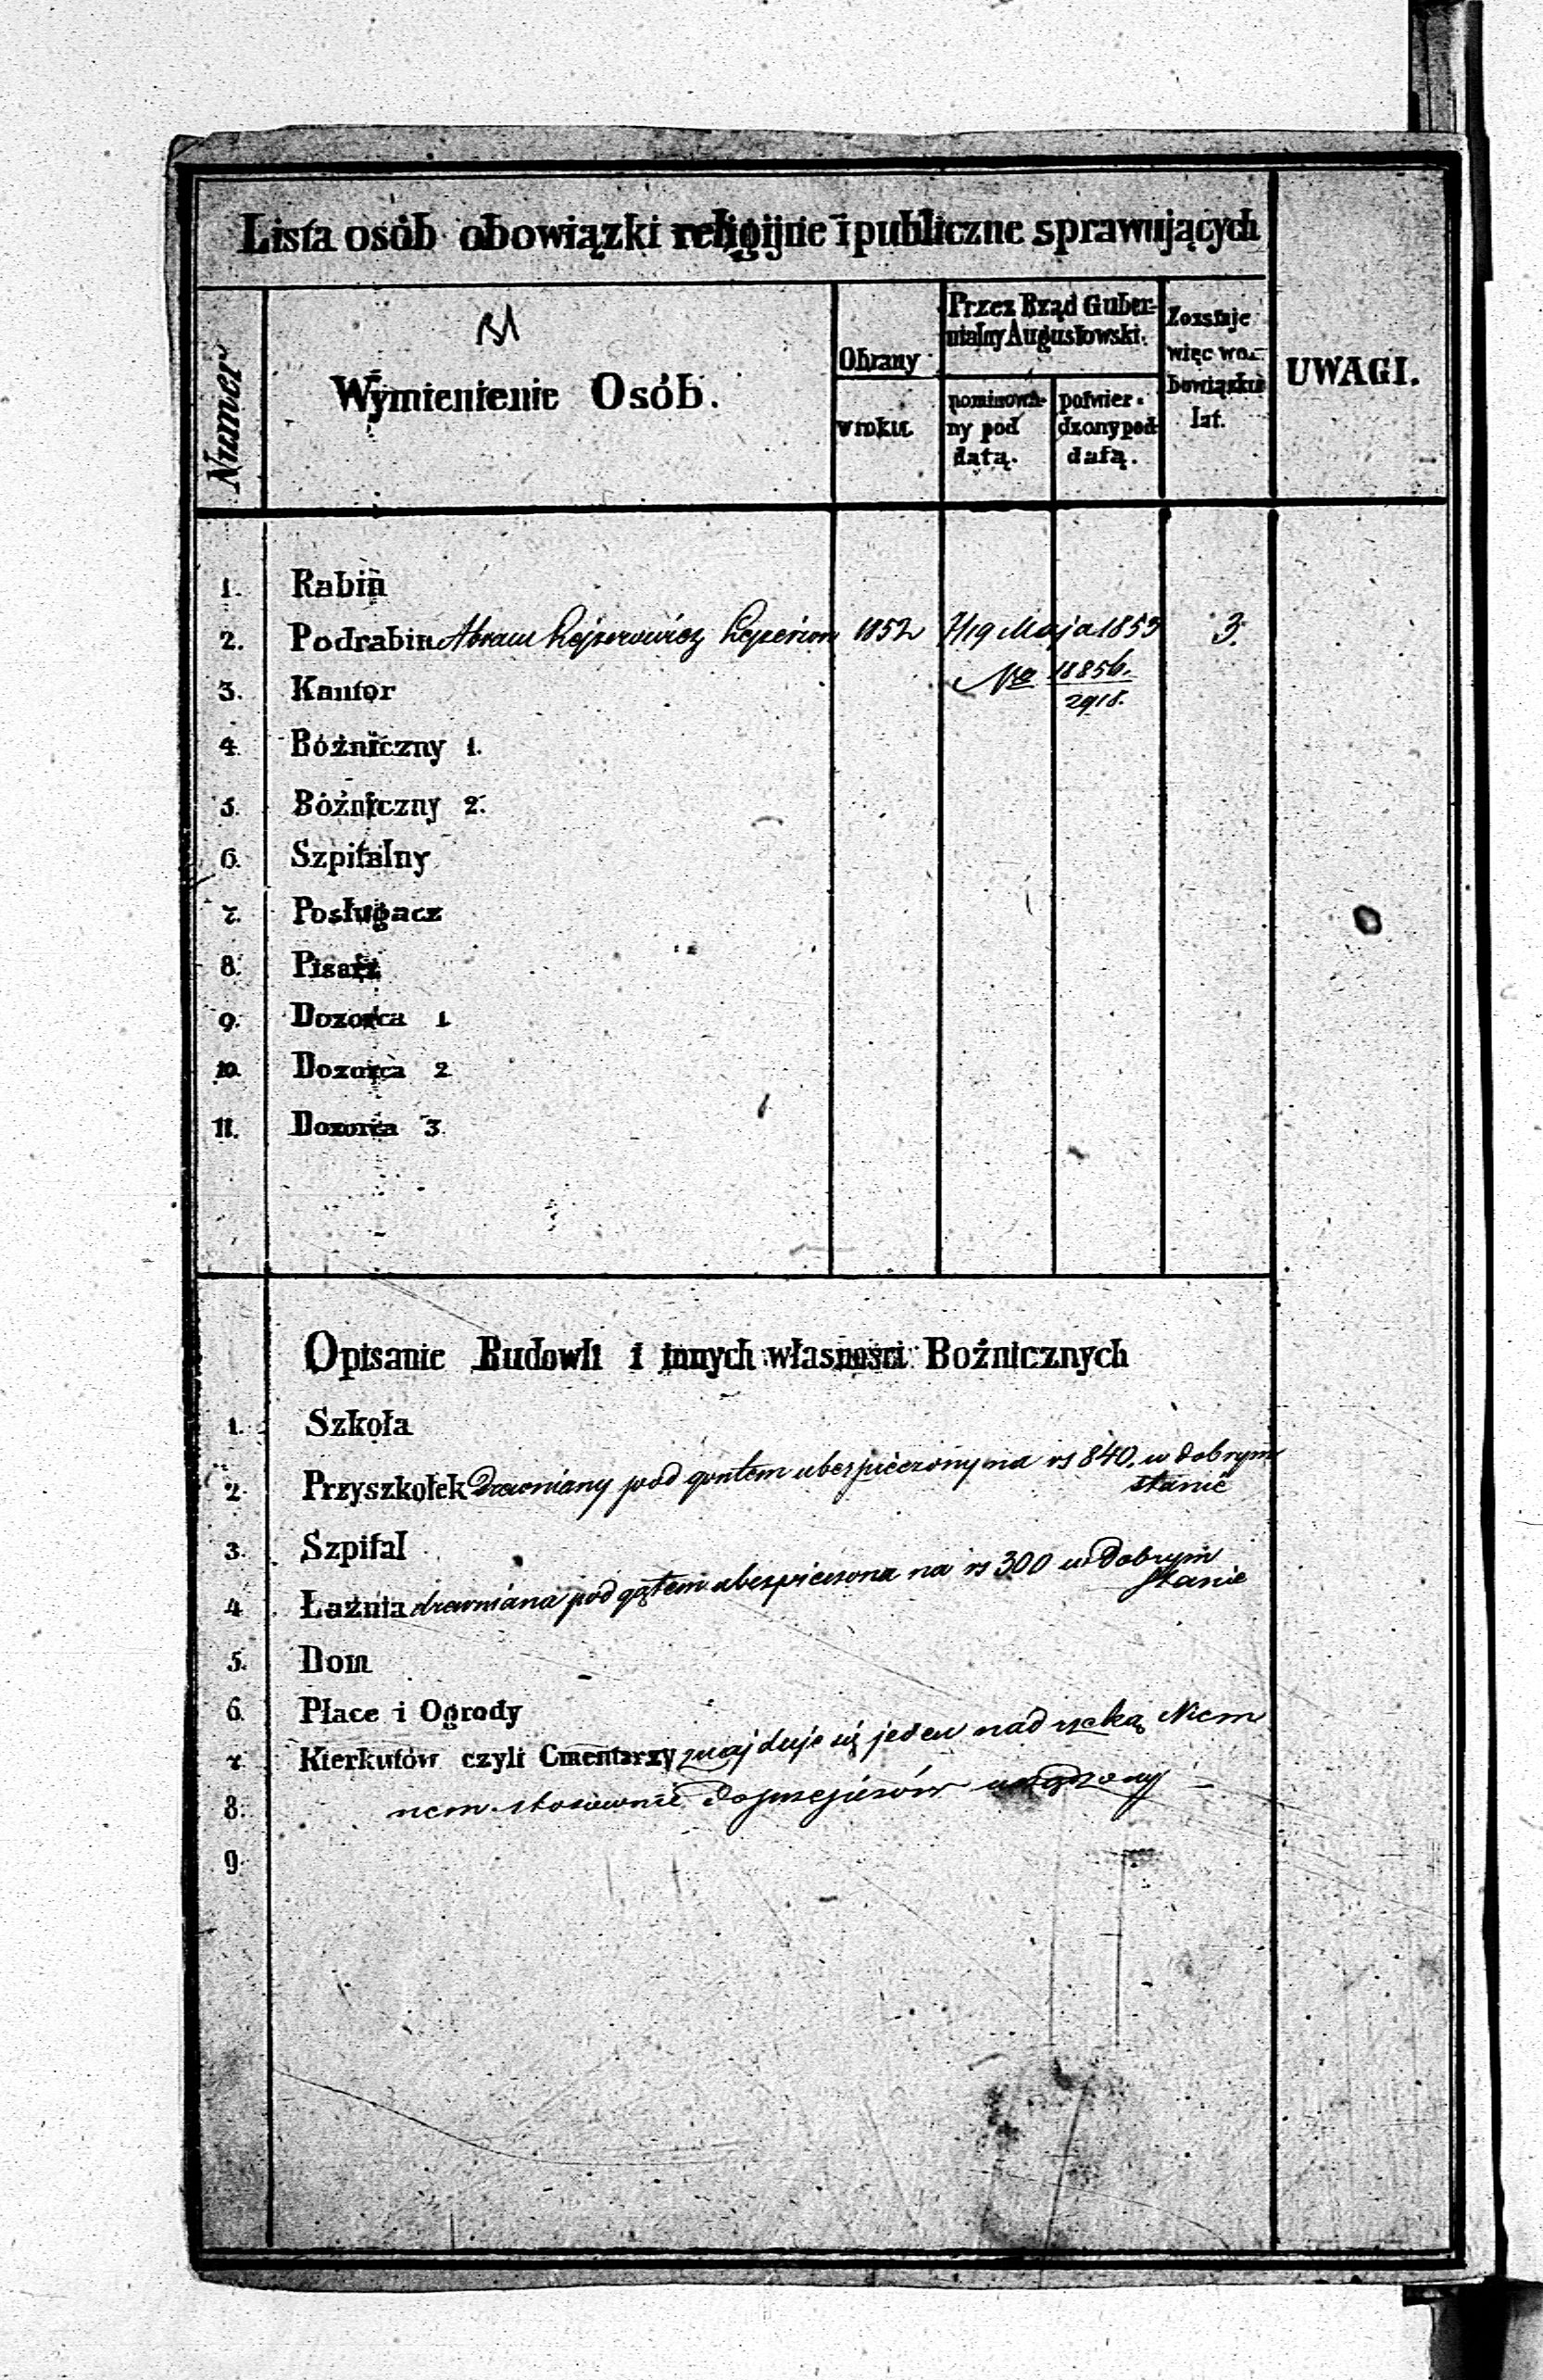 Lista osób obowiązki religijne i publiczne sprawujących
Numer
Wymienienie Osób.
Obrany
w roku.
Przez Rząd Guber-
nialny Augustowski.
nominowa-
ny pod
datą.
potwier-
dzony pod
datą.
Zostaje
więc wo-
bowiązku
lat.
UWAGI.
1. Rabin
2. Podrabin Abram 1852 7/19 Maja 1853 3.
3. Kantor No 18856.
2918.
4. Bóżniczny 1.
5. Bóżniczny 2.
6. Szpitalny
7. Posługacz
8. Pisarz
9. Dozorca 1
10. Dozorca 2
11. Dozorca 3
Opisanie Budowli i innych własności Bożnicznych
1. Szkoła
2. Przyszkołek Drewniany pod gontem ubezpieczony na rs 840. w dobrym
stanie
3. Szpital
4 Łaźnia drewniana pod gątem ubezpieczona na rs 300 w Dobrym
stanie
5. Dom
6. Place i Ogrody
7 Kierkutów czyli Cmentarzy znajduje się jeden nad rzeką Niem
8. nem stosownie do przepisów urządzony
9.